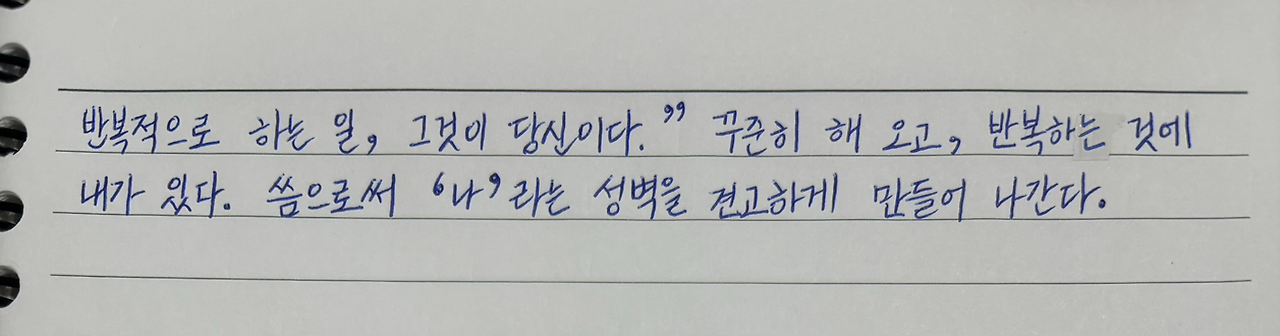 반복적으로 하는 일, 그것이 당신이다.” 꾸준히 해 오고, 반복하는 것에
내가 있다. 씀으로써 ‘나’라는 성벽을 견고하게 만들어 나간다.